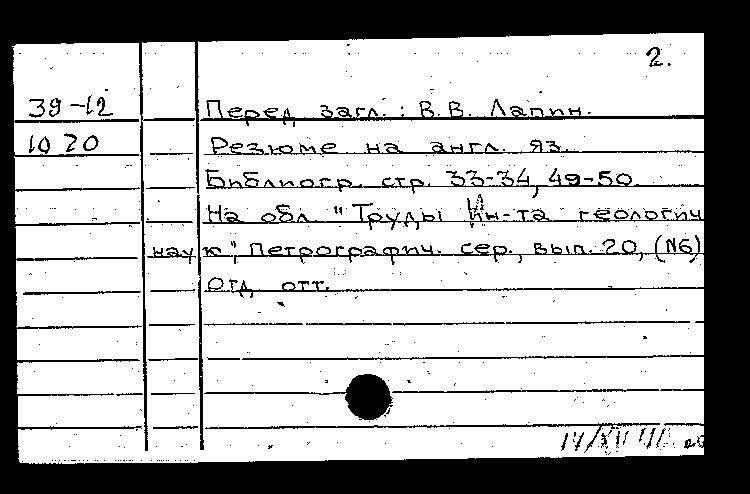 2.
39-12 Перед загл.: В.В. Лапин.
10 20 Резюме на англ. яз.
Библиогр. стр. 33-34, 49-50.
На обл. "Труды Ин-та геологич
наук", Петрографич. сер., вып. 20, (N6)
Отд. отт.